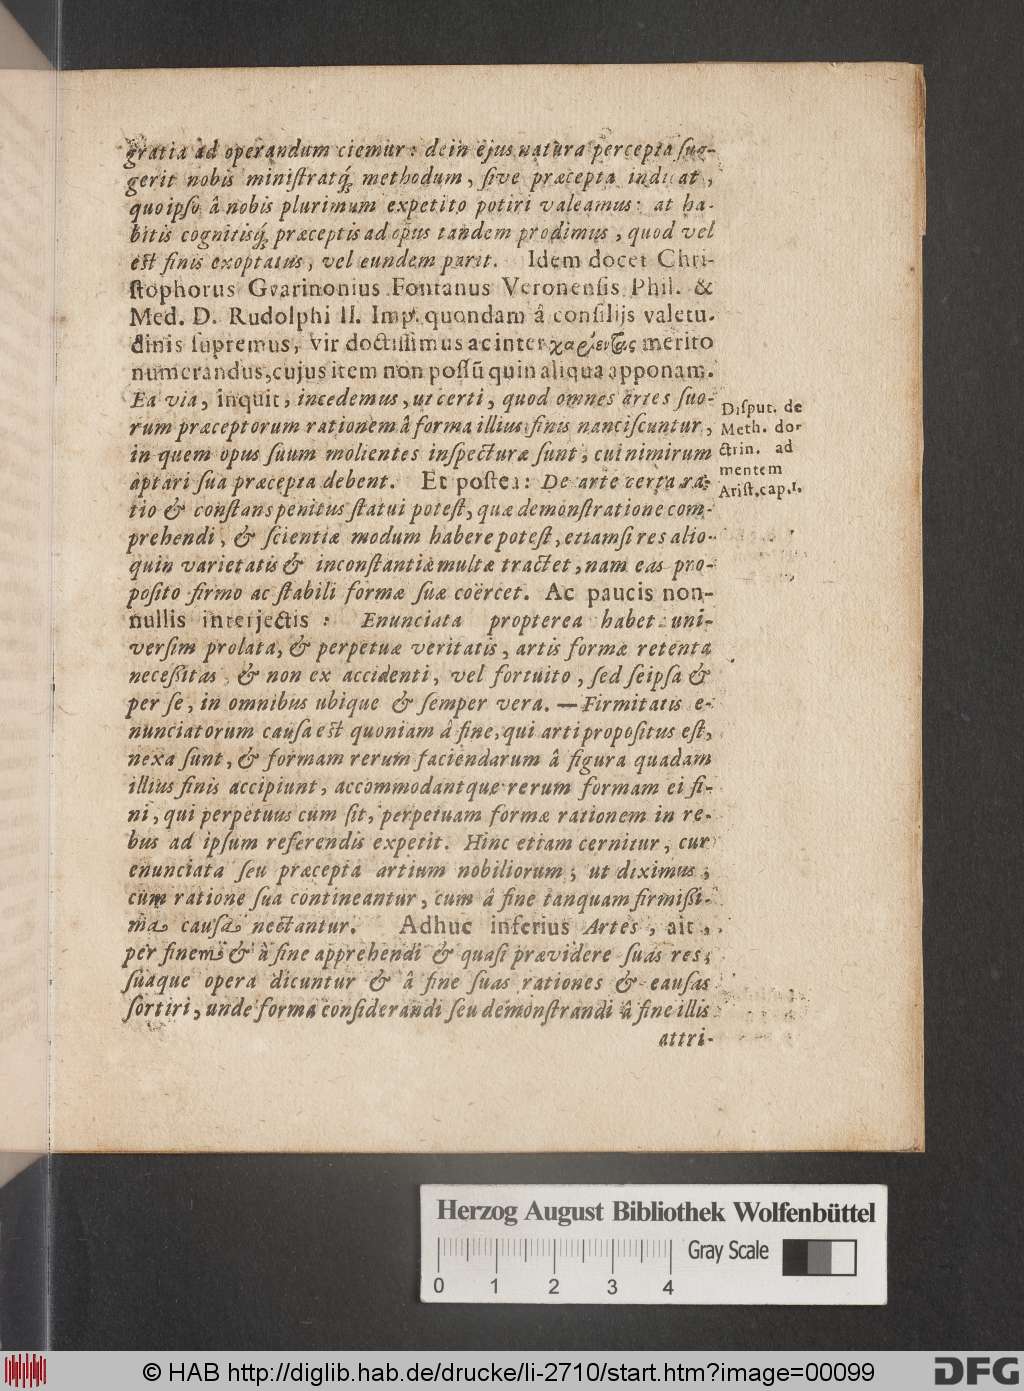 gratia ad operandum ciemur: dein ejus natura percepta ſug-
gerit nobis miniſtratq́; methodum, ſive præcepta indicat,
quo ipſo â nobis plurimum expetito potiri valeamus: at ha-
bitis cognitisq́; præceptis ad opus tandem prodimus, quod vel
eſt finis exoptatus, vel eundem parit. Idem docet Chri-
ſtophorus Gvarinonius Fontanus Veronenſis Phil. &
Med. D. Rudolphi II. Imp. quondam â conſilijs valetu-
dinis ſupremus, vir doctiſſimus ac inter χαρίεντας merito
numerandus, cujus item non poſſū quin aliqua apponam.
Ea via, inquit, incedemus, ut certi, quod omnes artes ſuo-
rum præceptorum rationem â forma illius finis nanciſcuntur,
in quem opus ſuum molientes inſpecturæ ſunt, cui nimirum
aptari ſua præcepta debent. Et poſtea: De arte certa ra-
tio & conſtans penitus ſtatui poteſt, quæ demonſtratione com-
prehendi, & ſcientiæ modum habere poteſt, etiamſi res alio-
quin varietatis & inconſtantiæ multæ tractet, nam eas pro-
poſito firmo ac ſtabili formæ ſuæ coërcet. Ac paucis non-
nullis interjectis: Enunciata propterea habet uni-
verſim prolata, & perpetuæ veritatis, artis formæ retenta
neceſſitas, & non ex accidenti, vel fortuito, ſed ſeipſa &
per ſe, in omnibus ubique & ſemper vera. — Firmitatis e-
nunciatorum cauſa eſt quoniam â fine, qui arti propoſitus eſt,
nexa ſunt, & formam rerum faciendarum â figura quadam
illius finis accipiunt, accommodantque rerum formam ei fi-
ni, qui perpetuus cum ſit, perpetuam formæ rationem in re-
bus ad ipſum referendis expetit. Hinc etiam cernitur, cur
enunciata ſeu præcepta artium nobiliorum, ut diximus,
cùm ratione ſua contineantur, cum â fine tanquam firmiſſi-
ma cauſa nectantur. Adhuc inferius Artes, ait,
per finem & â fine apprehendi & quaſi prævidere ſuas res,
ſuaque opera dicuntur & â fine ſuas rationes & cauſas
ſortiri, unde forma conſiderandi ſeu demonſtrandi â fine illis
attri-
Diſput. de
Meth. do-
ctrin. ad
mentem
Ariſt. cap. 1.
Herzog August Bibliothek Wolfenbüttel
Gray Scale
0 1 2 3 4
© HAB http://diglib.hab.de/drucke/li-2710/start.htm?image=00099
DFG